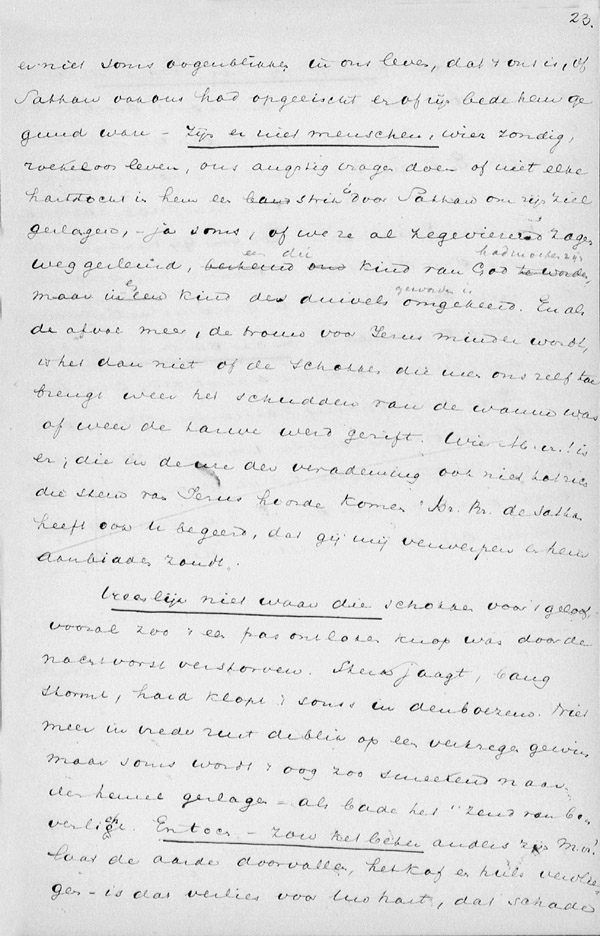 23.
er niet soms oogenblikken in ons leven, dat 't ons is, of
Sathan ook ons had opgeeischt en of zijn bede hem ge
gund ware – Zijn er niet menschen, wier zondig,
roekeloos leven, ons angstig vragen doen of niet elke
hartstocht in hem een band strik door Sathan om zijn ziel
geslagen, – ja soms, of we ze al zegevierend zagen
weggesleurd, bekend ons een die kind van God te worden, had moeten zijn
maar in een kind des duivels omgekeerd. geworden is En als
de afval meer, de trouw voor Jezus minder wordt,
is het dan niet of de schokken die men ons zelf toe
brengt weer het schudden van de wanne was
of weer de tarwe werd gezift. Wie M. vr.! is
er, die in de ure der verademing ook niet tot zich
die stem van Jezus hoorde komen: "Br. Br. de Sathan
heeft ook U begeerd, dat gij mij verwerpen en hem
aanbidden zoudt.
Vreeselijk niet waar die schokken voor 't geloof,
vooral zoo 't een pas ontloken knop was door de
nachtvorst verstorven. Sterk jaagt, bang
stormt, hard klopt 't soms in den boezem. Niet
meer in vrede rust de blik op een verkregen gewin,
maar soms wordt 't oog zoo smeekend naar
den hemel geslagen – als bade het "Zend van bo-
ven licht. En toch – zou het beter anders zijn M. vr.?
laat de aarde doorvallen, het kaf en huls vervlie-
gen – is dat verlies voor uw hart, dat schade